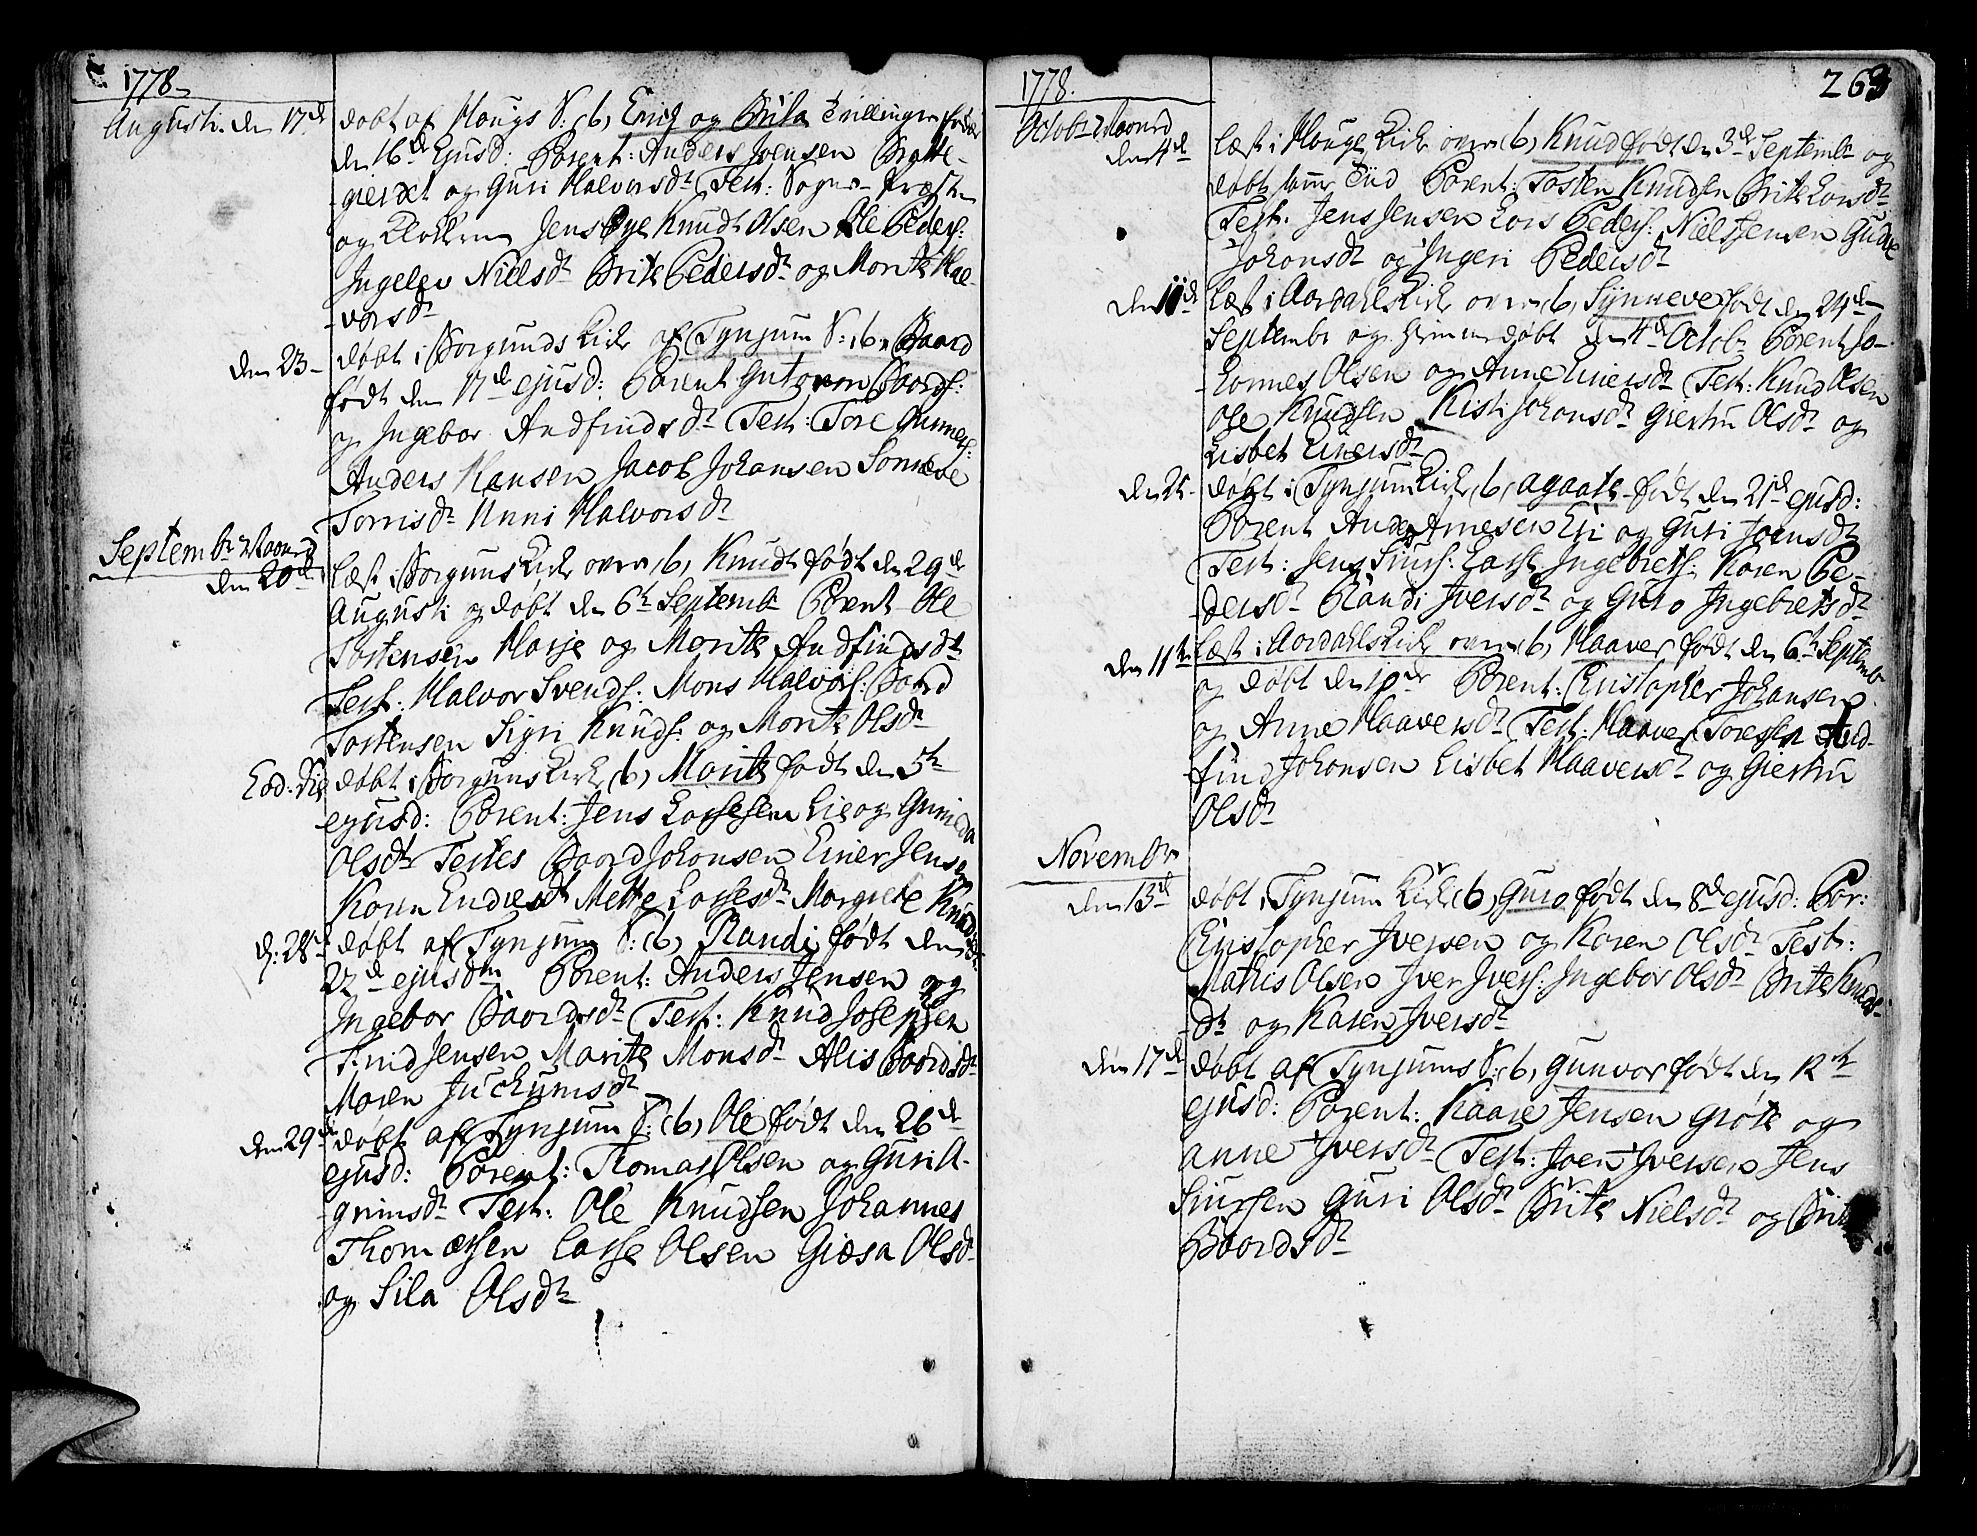 1778
Augusti. den 17de døbt af Hougs S: (b, Erich og Brita Tvillinger fødde
den 16de Ejusd: Parent: Anders Joensen Brøtte-
-gierdet og Guri Halvorsdtr Test: Sogne-Præsten
og Klokkeren Jens Øye Knudt Olsen Ole Peders:
Ingelev Nielsdtr Brite Pedersdtr og Marite Hal-
-vorsdtr
den 23- døbt i Borgunds Kirke af Tynjum S: (b, Baard
født den 17de ejusd: Parent Guttorm Baards:
og Ingebor Andfindsdtr Test: Tore Gunners:
Anders Hansen Jacob Johansen Sønneve
Torrisdtr Unni Halvorsdtr
Septembr Maaned
den 20de læst i Borguns Kirke over (b, Knudt født den 29de
Augusti og døbt den 6te Septembr Parent Ole
Tostensen Hasje og Marite Andfindsdtr
Test: Halvor Svends: Mons Halvors: Baard
Tostensen Sigri Knuds: og Marite Olsdtr
Eod: die døbt i Borguns Kirke (b, Marite født den 5te
ejusd: Parent: Jens Lassesen Lie og Gunilda
Olsdtr Testes Baard Johansen Einer Jensen
Karen Endresdtr Mette Lassesdtr Margrete Knudsdtr
d: 28de døbt af Tynjum S: (b, Randi født den
22de ejusdm Parent: Anders Jensen og
Ingebor Baardsdtr Test: Knud Josephsen
Knud Jensen Marite Monsdtr Alis Baardsdtr
Maren Juchumsdtr
den 29de døbt af Tynjum S: (b, Ole født den 26de
ejusd: Parent: Thomas Olsen og Guri A-
-grimsdtr Test: Ole Knudsen Johannes
Thomæssen Lasse Olsen Giøsa Olsdtr
og Sila Olsdtr
1778.
263
Octobr Maaned
den 4de læst i Houge Kirke over (b, Knud født den 3de Septembr og
døbt samme Tiid Parent: Tosten Knudsen Brite Larsdtr
Test: Jens Jensen Lars Peders: Niels Jensen Gudve
Johansdtr og Ingeri Pedersdtr
den 11de læst i Aardahls Kirke over (b, Synneve født den 24de
Septembr og hjemmedøbt den 4de Octobr Parent Jo-
-hannes Olsen og Anne Einersdtr Test: Knud Olsen
Ole Knudsen Kisti Johansdtr Giertru Olsdtr og
Lisbet Einersdtr
den 25- døbt i Tynjum Kirke (b, Agaate født den 21de ejusd:
Parent Anders Arnesen Eri og Guri Joensdtr
Test: Jens Siurs: Lasse Ingebrets: Karen Pe-
dersdtr Randi Iversdtr og Guro Ingebretsdtr
den 11te læst i Aardahls Kirke over (b, Haaver født den 6te Septembr
og døbt den 10de Parent: Christopher Johansen
og Anne Haaversdtr Test: Haaver Toresen And-
find Johansen Lisbet Haaversdtr og Giertru
Olsdtr
Novembr
den 13de døbt i Tynjum Kirke (b, Guro født den 8de ejusd: Par:
Christopher Iversen og Karen Olsdtr Test:
Mathis Olsen Iver Ivers: Ingebor Olsdtr Brite Knuds-
-dtr og Karen Iversdtr
den 17de døbt af Tynjums S: (b, Gunvor født den 12te
ejusd: Parent: Kaare Jensen Grøte og
Anne Iversdtr Test: Joen Iversen Jens
Siursen Guri Olsdtr Brite Nielsdtr og Brite
Baardsdtr